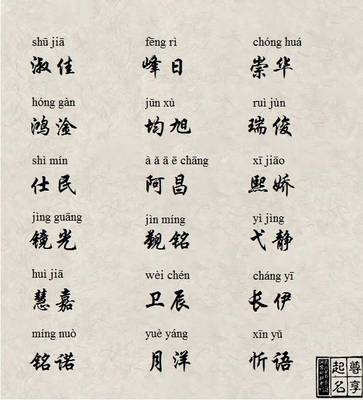 shū jiā fēng rì chóng huá
淑佳 峰日 崇华
hóng gàn jūn xù ruì jùn
鸿淦 均旭 瑞俊
shì mín à ǎ ā ē chāng xī jiāo
仕民 阿昌 熙娇
jìng guāng jìn míng yì jìng
镜光 觐铭 弋静
huì jiā wèi chén cháng yī
慧嘉 卫辰 长伊
míng nuò yuè yáng xīn yǔ
铭诺 月洋 忻语
尊享
起名